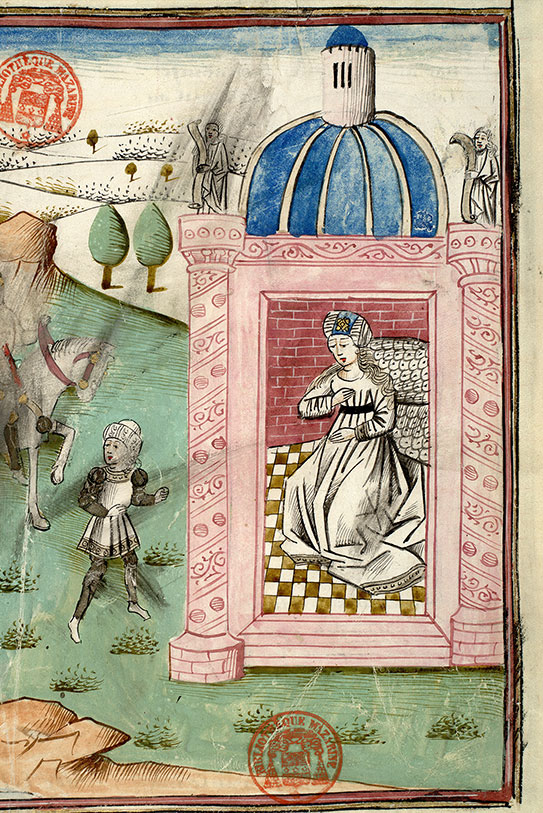 LIOTHEQUE MAZARINE
BIBLIOTHEQUE MAZARINE